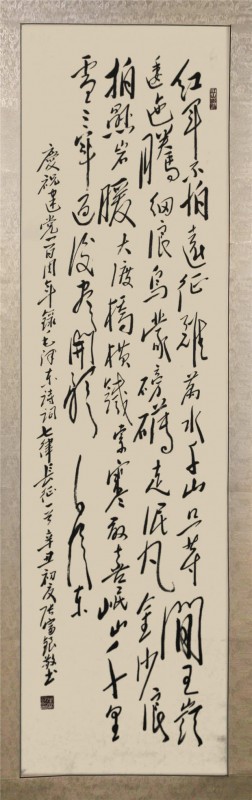 红军不怕远征难万水千山只等闲五岭
逶迤腾细浪乌蒙磅礴走泥丸金沙浪
拍悬岩暖大渡桥横铁索寒更喜岷山千里
雪三军过后尽开颜 毛泽东
庆祝建党一百周年录毛泽东诗词七律长征一首辛丑初夏张富银敬书